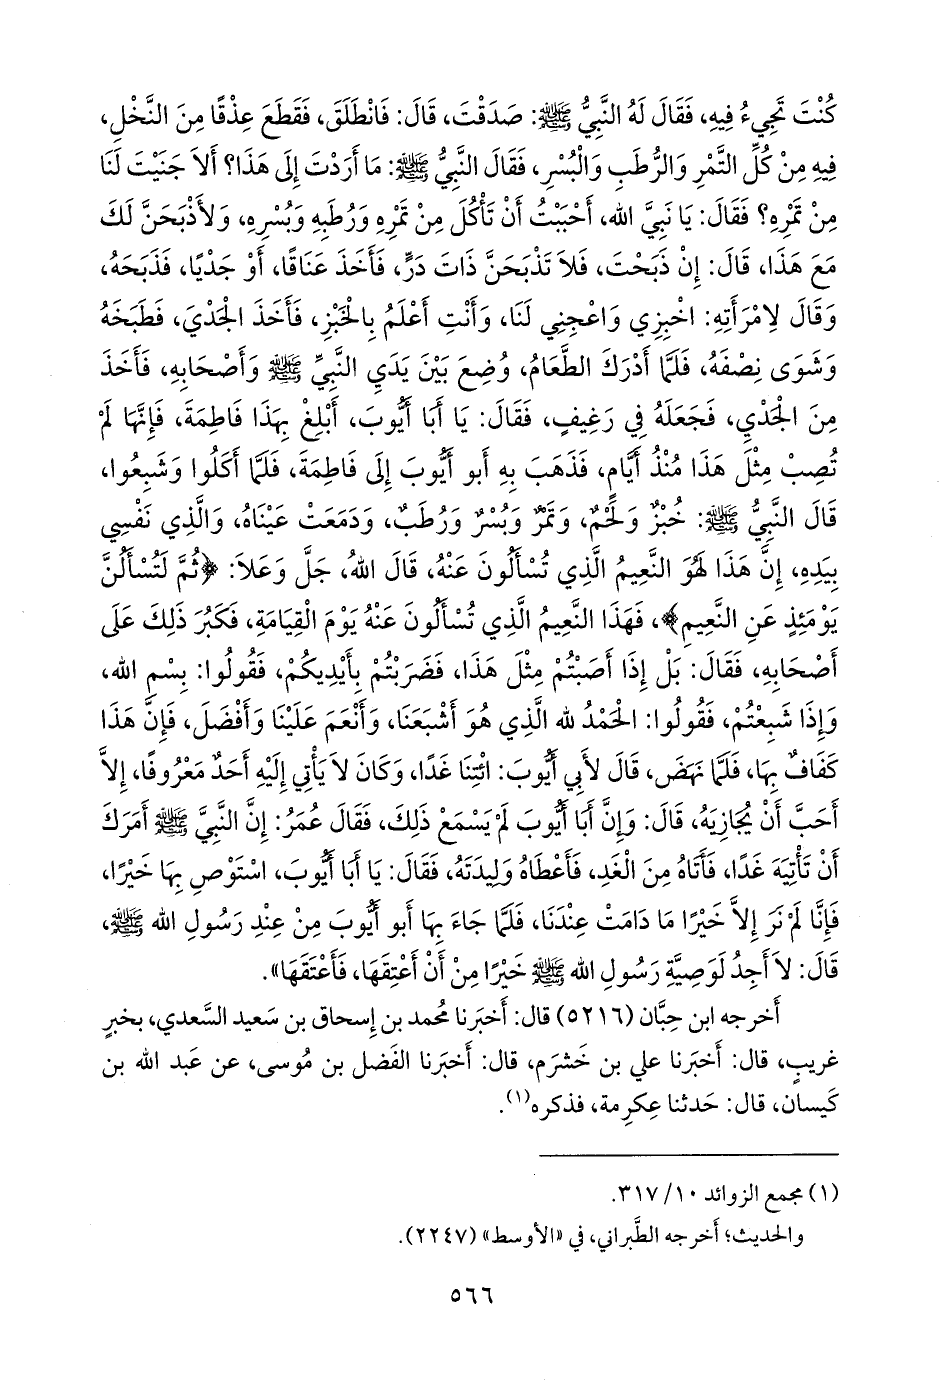 كُنْتَ تَجِيءُ فِيهِ، فَقَالَ لَهُ النَّبِيُّ ﷺ: صَدَقْتَ، قَالَ: فَانْطَلَقَ، فَقَطَعَ عِذْقًا مِنَ النَّخْلِ،
فِيهِ مِنْ كُلِّ التَّمْرِ وَالرُّطَبِ وَالْبُسْرِ، فَقَالَ النَّبِيُّ ﷺ: مَا أَرَدْتَ إِلَى هَذَا؟ أَلاَ جَنَيْتَ لَنَا
مِنْ تَمْرِهِ؟ فَقَالَ: يَا نَبِيَّ الله، أَحْبَبْتُ أَنْ تَأْكُلَ مِنْ تَمْرِهِ وَرُطَبِهِ وَبُسْرِهِ، وَلأَذْبَحَنَّ لَكَ
مَعَ هَذَا، قَالَ: إِنْ ذَبَحْتَ، فَلاَ تَذْبَحَنَّ ذَاتَ دَرٍّ، فَأَخَذَ عَنَاقًا، أَوْ جَدْيًا، فَذَبَحَهُ،
وَقَالَ لِامْرَأَتِهِ: اخْبِزِي وَاعْجِنِي لَنَا، وَأَنْتِ أَعْلَمُ بِالْخَبْزِ، فَأَخَذَ الجَدْيَ، فَطَبَخَهُ
وَشَوَى نِصْفَهُ، فَلَمَّا أَدْرَكَ الطَّعَامُ، وُضِعَ بَيْنَ يَدَيِ النَّبِيِّ ﷺ وَأَصْحَابِهِ، فَأَخَذَ
مِنَ الْجَدْيِ، فَجَعَلَهُ فِي رَغِيفٍ، فَقَالَ: يَا أَبَا أَيُّوبَ، أَبْلِغْ بِهَذَا فَاطِمَةَ، فَإِنَّهَا لَمْ
تُصِبْ مِثْلَ هَذَا مُنْذُ أَيَّامٍ، فَذَهَبَ بِهِ أَبو أَيُّوبَ إِلَى فَاطِمَةَ، فَلَمَّا أَكَلُوا وَشَبِعُوا،
قَالَ النَّبِيُّ ﷺ: خُبْزٌ وَلَحْمٌ، وَتَمْرٌ وَبُسْرٌ وَرُطَبٌ، وَدَمَعَتْ عَيْنَاهُ، وَالَّذِي نَفْسِي
بِيَدِهِ، إِنَّ هَذَا لَهُوَ النَّعِيمُ الَّذِي تُسْأَلُونَ عَنْهُ، قَالَ اللهُ، جَلَّ وَعَلاَ: ﴿ثُمَّ لَتُسْأَلُنَّ
يَوْمَئِذٍ عَنِ النَّعِيمِ﴾، فَهَذَا النَّعِيمُ الَّذِي تُسْأَلُونَ عَنْهُ يَوْمَ الْقِيَامَةِ، فَكَبُرَ ذَلِكَ عَلَى
أَصْحَابِهِ، فَقَالَ: بَلْ إِذَا أَصَبْتُمْ مِثْلَ هَذَا، فَضَرَبْتُمْ بِأَيْدِيكُمْ، فَقُولُوا: بِسْمِ الله،
وَإِذَا شَبِعْتُمْ، فَقُولُوا: الحَمْدُ لله الَّذِي هُوَ أَشْبَعَنَا، وَأَنْعَمَ عَلَيْنَا وَأَفْضَلَ، فَإِنَّ هَذَا
كَفَافٌ بِهَا، فَلَمَّا نَهَضَ، قَالَ لأَبِي أَيُّوبَ: ائْتِنَا غَدًا، وَكَانَ لاَ يَأْتِي إِلَيْهِ أَحَدٌ مَعْرُوفًا، إِلاَّ
أَحَبَّ أَنْ يُجَازِيَهُ، قَالَ: وَإِنَّ أَبَا أَيُّوبَ لَمْ يَسْمَعْ ذَلِكَ، فَقَالَ عُمَرُ: إِنَّ النَّبِيَّ ﷺ أَمَرَكَ
أَنْ تَأْتِيَهُ غَدًا، فَأَتَاهُ مِنَ الْغَدِ، فَأَعْطَاهُ وَلِيدَتَهُ، فَقَالَ: يَا أَبَا أَيُّوبَ، اسْتَوْصِ بِهَا خَيْرًا،
فَإِنَّا لَمْ نَرَ إِلاَّ خَيْرًا مَا دَامَتْ عِنْدَنَا، فَلَمَّا جَاءَ بِهَا أَبو أَيُّوبَ مِنْ عِنْدِ رَسُولِ الله ﷺ،
قَالَ: لاَ أَجِدُ لَوَصِيَّةِ رَسُولِ الله ﷺ خَيْرًا مِنْ أَنْ أَعْتِقَهَا، فَأَعْتَقَهَا».
أَخرجه ابن حِبَّان (٥٢١٦) قال: أَخبَرنا مُحمد بن إِسحاق بن سَعيد السَّعدي، بخبرٍ
غريبٍ، قال: أَخبَرنا علي بن خَشرَم، قال: أَخبَرنا الفَضل بن مُوسى، عن عَبد الله بن
كَيسان، قال: حَدثنا عِكرِمة، فذكره(١).
(١) مجمع الزوائد ١٠/٣١٧.
والحديث؛ أَخرجه الطَّبراني، في «الأوسط» (٢٢٤٧).
٥٦٦